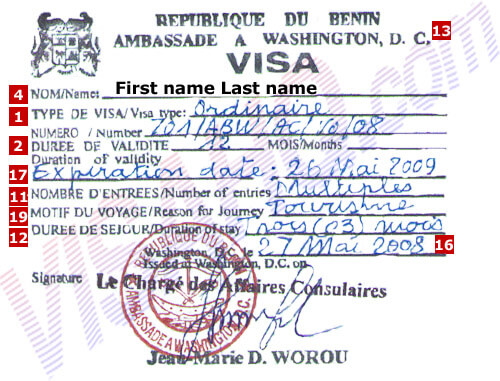 REPUBLIQUE DU BENIN
AMBASSADE A WASHINGTON, D. C. 13
VISA
4 NOM/Name: First name Last name
1 TYPE DE VISA/Visa type: Ordinaire
NUMERO / Number 201/ABW/AC/10/08
2 DUREE DE VALIDITE 12 MOIS/Months
Duration of validity
17 Expiration date: 26 Mai 2009
11 NOMBRE D'ENTREES/Number of entries Multiples
19 MOTIF DU VOYAGE/Reason for Journey Tourisme
12 DUREE DE SEJOUR/Duration of stay Trois (03) mois
Washington, D.C. le 27 Mai 2008 16
Issued in Washington, D.C. on
Signature Le Chargé des Affaires Consulaires
REPUBLIQUE DU BENIN
AMBASSADE A WASHINGTON, D.C.
Jean-Marie D. WOROU